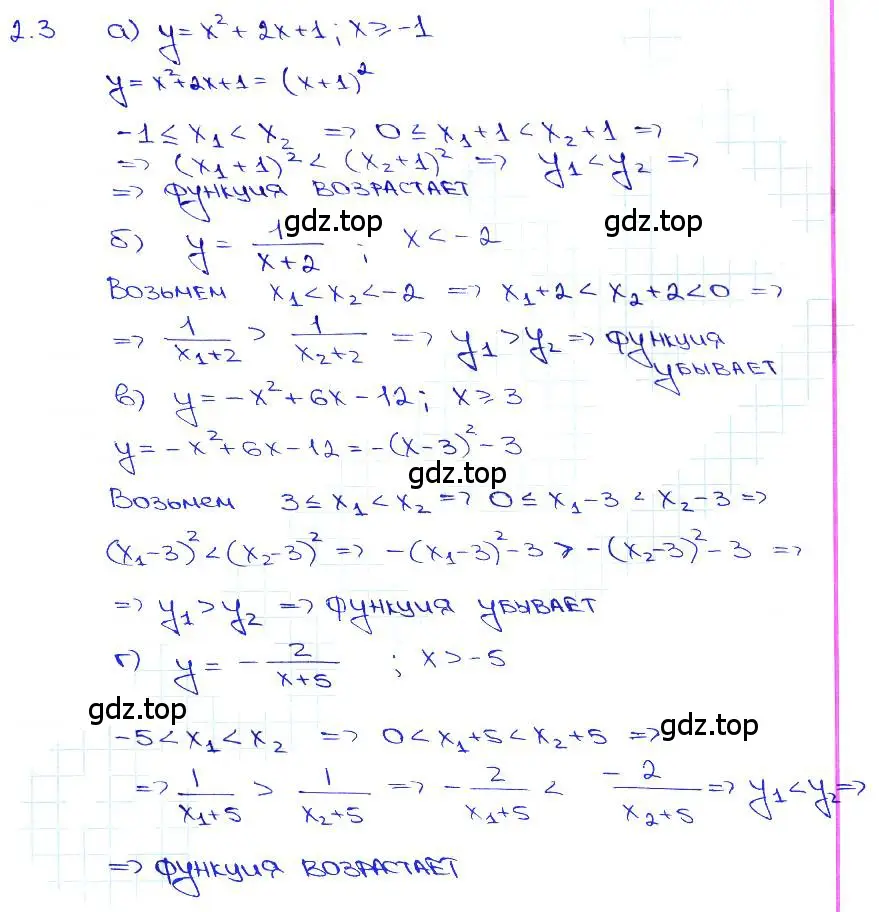 2.3 а) y = x² + 2x + 1; x ≥ -1
y = x² + 2x + 1 = (x+1)²
-1 ≤ x₁ < x₂ => 0 ≤ x₁+1 < x₂+1 =>
=> (x₁+1)² < (x₂+1)² => y₁ < y₂ =>
=> функция возрастает
gdz.top gdz.top
б) y = 1/(x+2); x < -2
Возьмем x₁ < x₂ < -2 => x₁+2 < x₂+2 < 0 =>
=> 1/(x₁+2) > 1/(x₂+2) => y₁ > y₂ => функция
убывает
в) y = -x² + 6x - 12; x ≥ 3
y = -x² + 6x - 12 = -(x-3)² - 3
gdz.top
Возьмем 3 ≤ x₁ < x₂ => 0 ≤ x₁-3 < x₂-3 =>
(x₁-3)² < (x₂-3)² => -(x₁-3)² - 3 > -(x₂-3)² - 3 =>
=> y₁ > y₂ => функция убывает
г) y = - 2/(x+5); x > -5
gdz.top gdz.top
-5 < x₁ < x₂ => 0 < x₁+5 < x₂+5 =>
=> 1/(x₁+5) > 1/(x₂+5) => - 2/(x₁+5) < - 2/(x₂+5) => y₁ < y₂ =>
=> функция возрастает